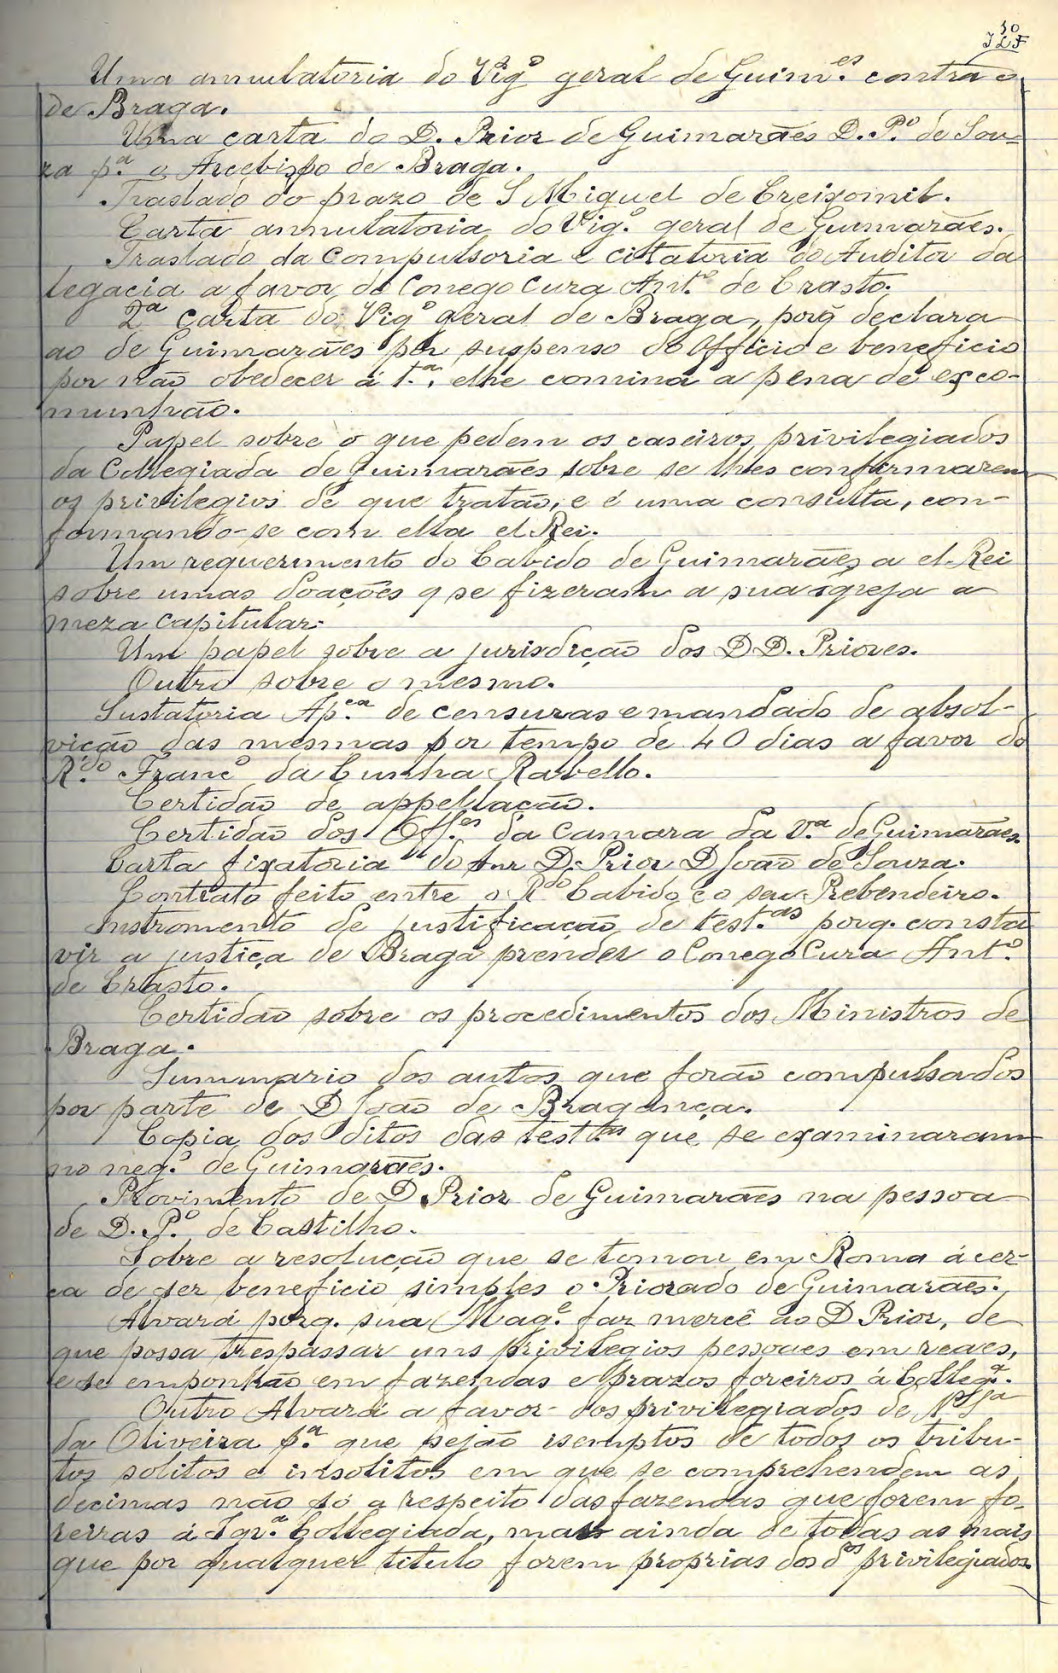 30
JLF
Uma annulatoria do Vigº geral de Guim.es contra o
de Braga.
Uma carta do D. Prior de Guimarães D. P.º de Sou-
za p.ª o Arcebispo de Braga.
Traslado do prazo de S Miguel de Creixomil.
Carta annulatoria do Vig.º geral de Guimarães.
Traslado da Compulsoria e citatoria do Auditor da
legacia a favor do Conego Cura Ant.º de Crasto.
2ª carta do Vigº geral de Braga, porq̃ declara
ao de Guimarães por suspenso do officio e beneficio
por não obedecer á 1.ª, elhe comina a pena de exco-
munhão.
Papel sobre o que pedem os caseiros privilegiados
da Collegiada de Guimarães sobre se lhes confirmarem
os privilegios de que tratão, e é uma consulta, con-
formando-se com ella el Rei.
Um requerimento do Cabido de Guimarães a el-Rei
sobre umas doações q se fizeram a sua igreja a
meza capitular.
Um papel sobre a jurisdição dos DD. Priores.
Outro sobre o mesmo.
Sustatoria Ap.ca de censuras e mandado de absol-
vição das mesmas por tempo de 40 dias a favor do
R.do Francº da Cunha Rabello.
Certidão de appellação.
Certidão dos Off.es da Camara da V.ª de Guimarães.
Carta fixatoria do D. Prior D João de Souza.
Contrato feito entre o Rdo Cabido e o seu Prebendeiro.
Instromento de justificação de test.as porq. consta
vir a justiça de Braga prender o Conego Cura Ant.º
de Crasto.
Certidão sobre os procedimentos dos Ministros de
Braga.
Summario dos autos que forão compulsados
por parte de D João de Bragança.
Copia dos ditos das testas que se examinaram
no neg.º de Guimarães.
Provimento de D Prior de Guimarães na pessoa
de D. P.º de Castilho.
Sobre a resolução que se tomou em Roma ácer-
ca de ser beneficio simples o Priorado de Guimarães.
Alvará porq. sua Mag.e faz mercê ao D Prior, de
que possa trespassar uns privilegios pessoaes em reaes,
e se emponhão em fazendas e prazos foreiros á Colleg.ª
Outro Alvará a favor dos privilegiados de N Sra
da Oliveira p.ª que sejão isemptos de todos os tribu-
tos solitos e insolitos em que se comprehendem as
decimas não só a respeito das fazendas que forem fo-
reiras á Igr.ª Collegiada, mas ainda de todas as mais
que por qualquer titulo forem proprias dos dos privilegiados